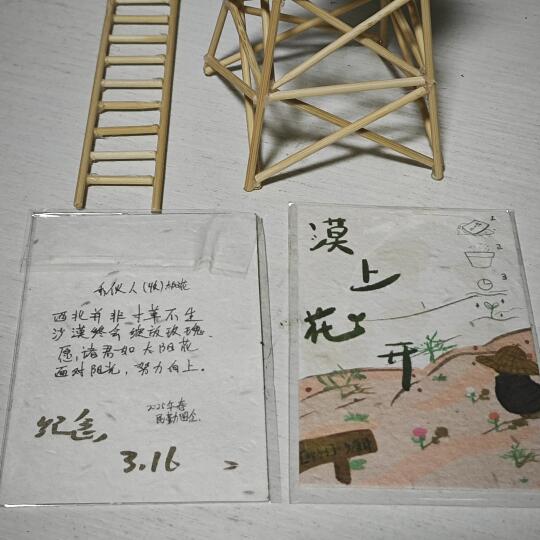 西北并非寸草不生
沙漠终会绽放玫瑰
愿,诸君如太阳花
面对阳光,努力向上。
2025年春
纪念,
3.16
漠
上
花
开
1
2
3